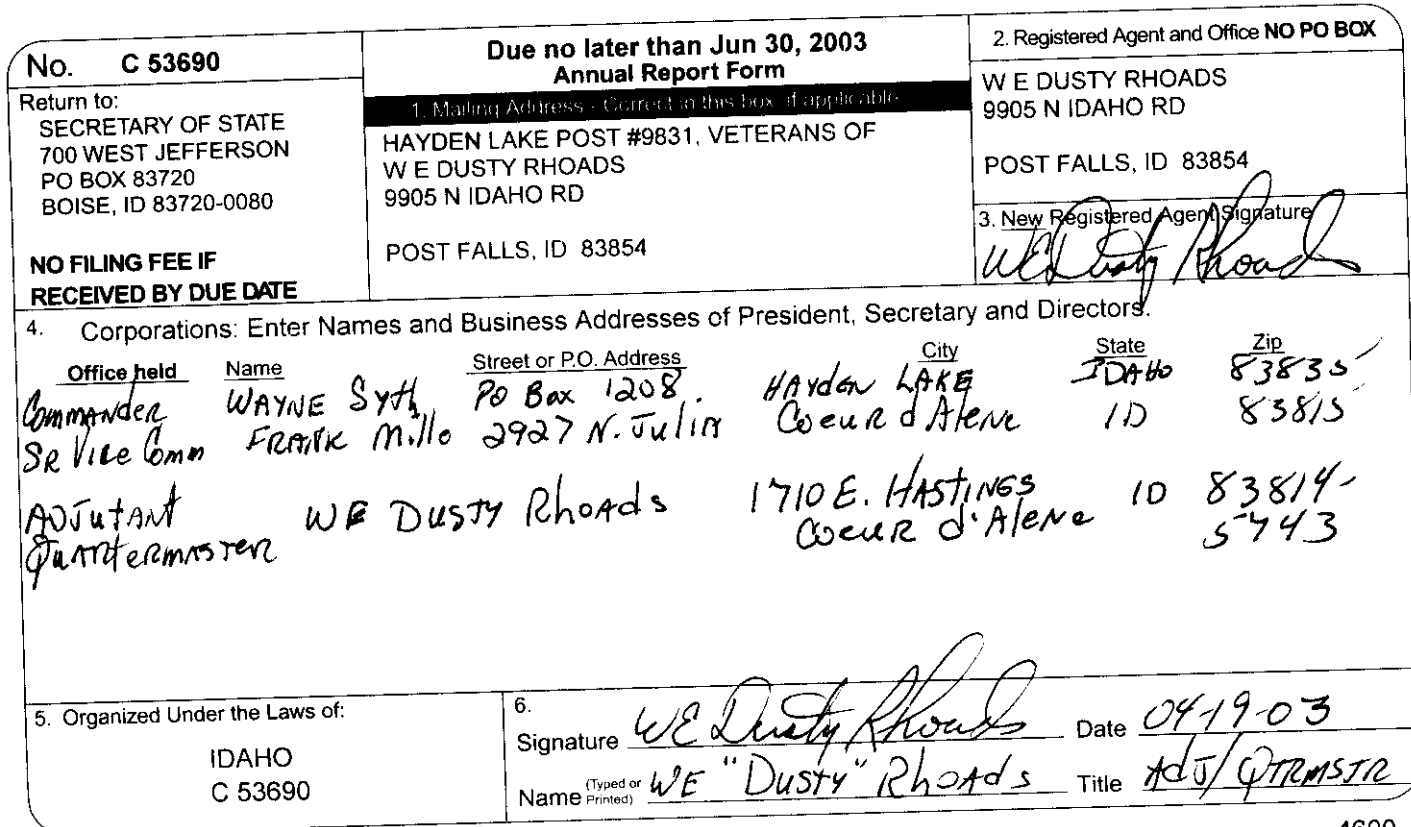 No. C 53690
Return to:
SECRETARY OF STATE
700 WEST JEFFERSON
PO BOX 83720
BOISE, ID 83720-0080
NO FILING FEE IF
RECEIVED BY DUE DATE
Due no later than Jun 30, 2003
Annual Report Form
1. Mailing Address - Correct in this box, if applicable
HAYDEN LAKE POST #9831, VETERANS OF
W E DUSTY RHOADS
9905 N IDAHO RD
POST FALLS, ID 83854
2. Registered Agent and Office NO PO BOX
W E DUSTY RHOADS
9905 N IDAHO RD
POST FALLS, ID 83854
3. New Registered Agent Signature
WE Dusty Rhoads
4. Corporations: Enter Names and Business Addresses of President, Secretary and Directors.
Office held Name Street or P.O. Address City State Zip
Commander WAYNE Syth PO Box 1208. HAyden LAKE IDAHO 83835
SR Vice Comm FRANK Millo 2927 N. Julia Coeur d'Alene ID 83815
ADJUTANT WE DUSTY RhoAds 1710 E. HASTINGS ID 83814-
QuARtermASTER Coeur d'AleNe 5743
5. Organized Under the Laws of:
IDAHO
C 53690
6.
Signature WE Dusty Rhoads Date 04-19-03
Name (Typed or Printed) WE "DUSTY" RhoAds Title AdJ/QTRMSTR